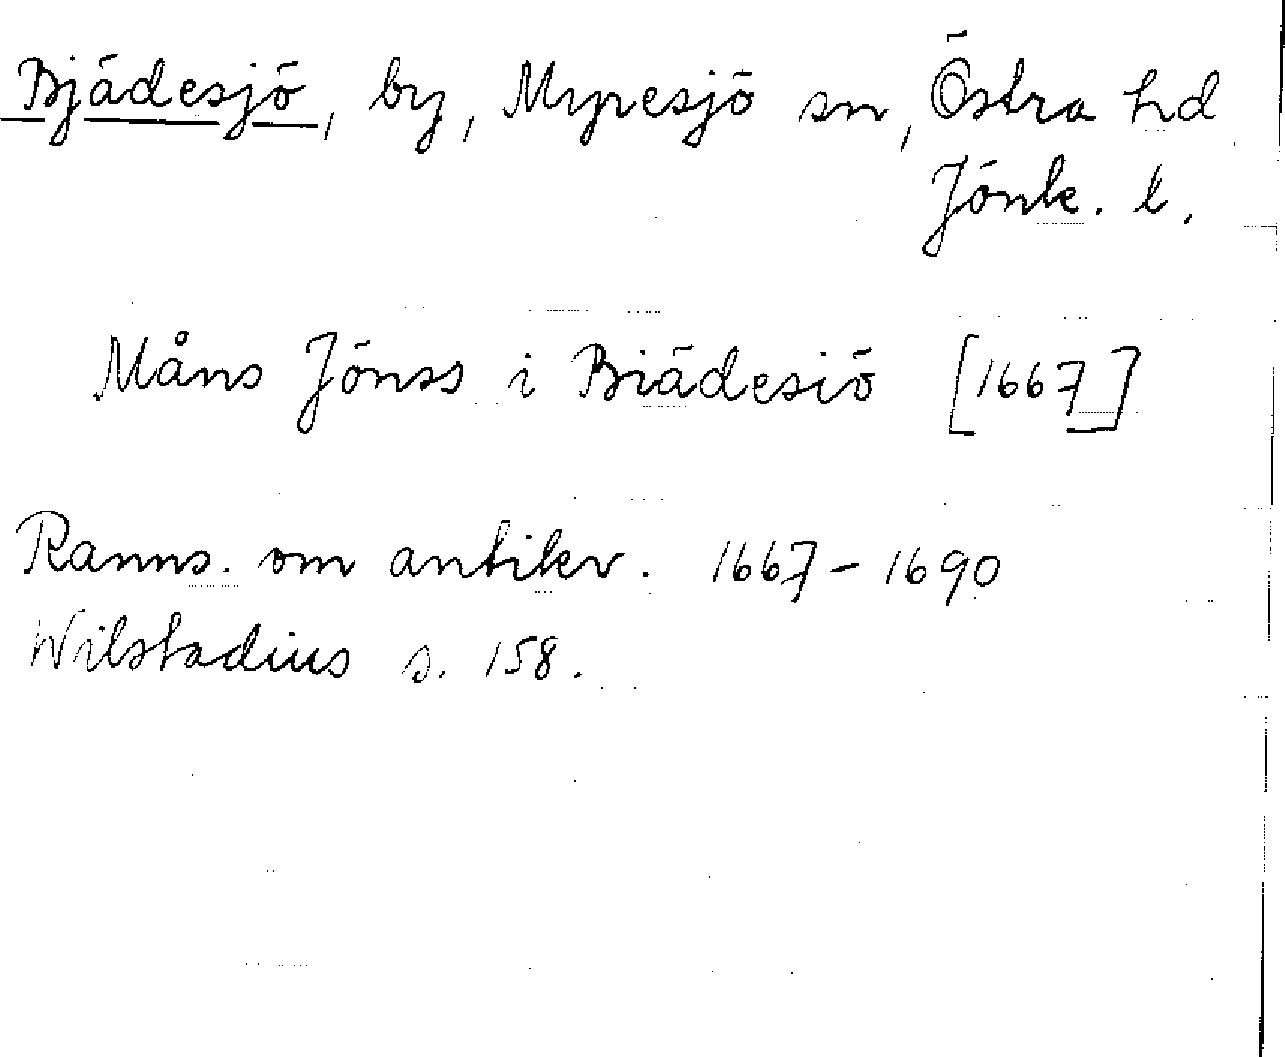 Bjädesjö, by, Myresjö sn, Östra hd
Jönk. l.
Måns Jönss i Biädesiö [1667]
Ranns. om antikv. 1667-1690
Wilstadius s. 158.